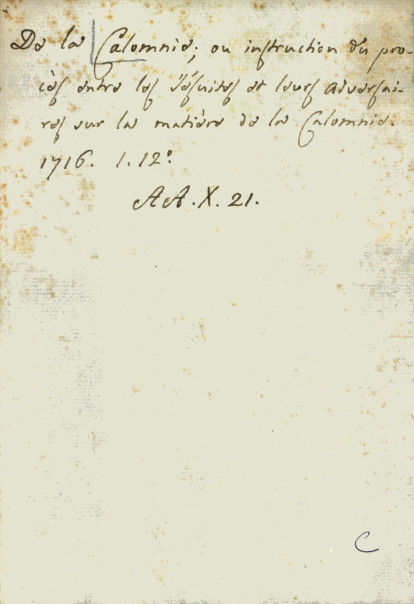 De la Calomnie; ou instruction du pro-
cès entre les Jésuites et leurs adversai-
res sur la matière de la Calomnie.
1716. 1. 12º.
AA. X. 21.
C